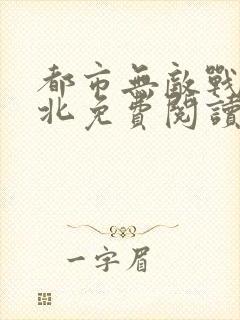 都市無敵戰
北免費閱讀
一字眉